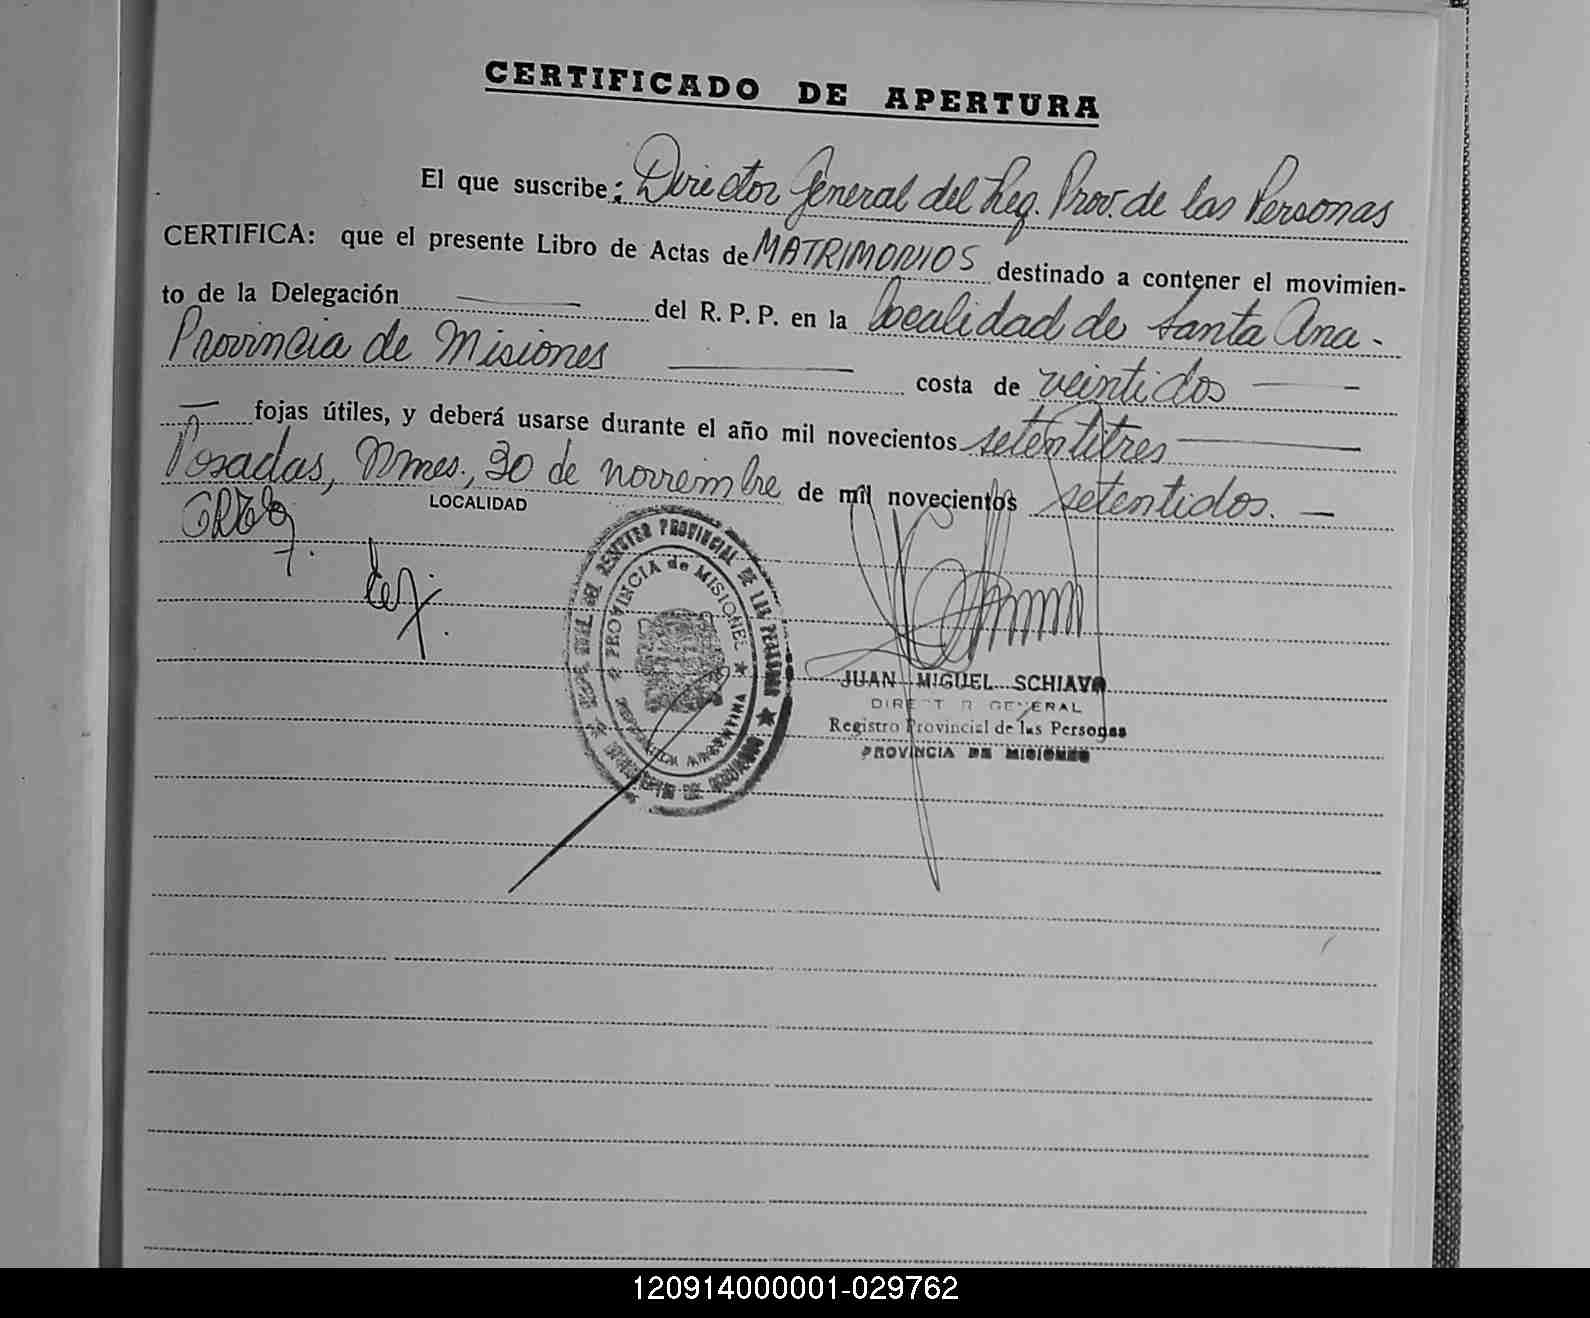 CERTIFICADO DE APERTURA
El que suscribe: Director General del Reg. Prov. de las Personas
CERTIFICA: que el presente Libro de Actas de MATRIMONIOS destinado a contener el movimien-
to de la Delegación ——— del R. P. P. en la localidad de Santa Ana -
Provincia de Misiones ——— costa de veintidos ———
— fojas útiles, y deberá usarse durante el año mil novecientos setentitres ———
Posadas, Mnes., 30 de noviembre de mil novecientos setentidos. —
LOCALIDAD
PROVINCIA de MISIONES
REPUBLICA ARGENTINA
JUAN MIGUEL SCHIAVO
DIRECTOR GENERAL
Registro Provincial de las Personas
PROVINCIA DE MISIONES
120914000001-029762